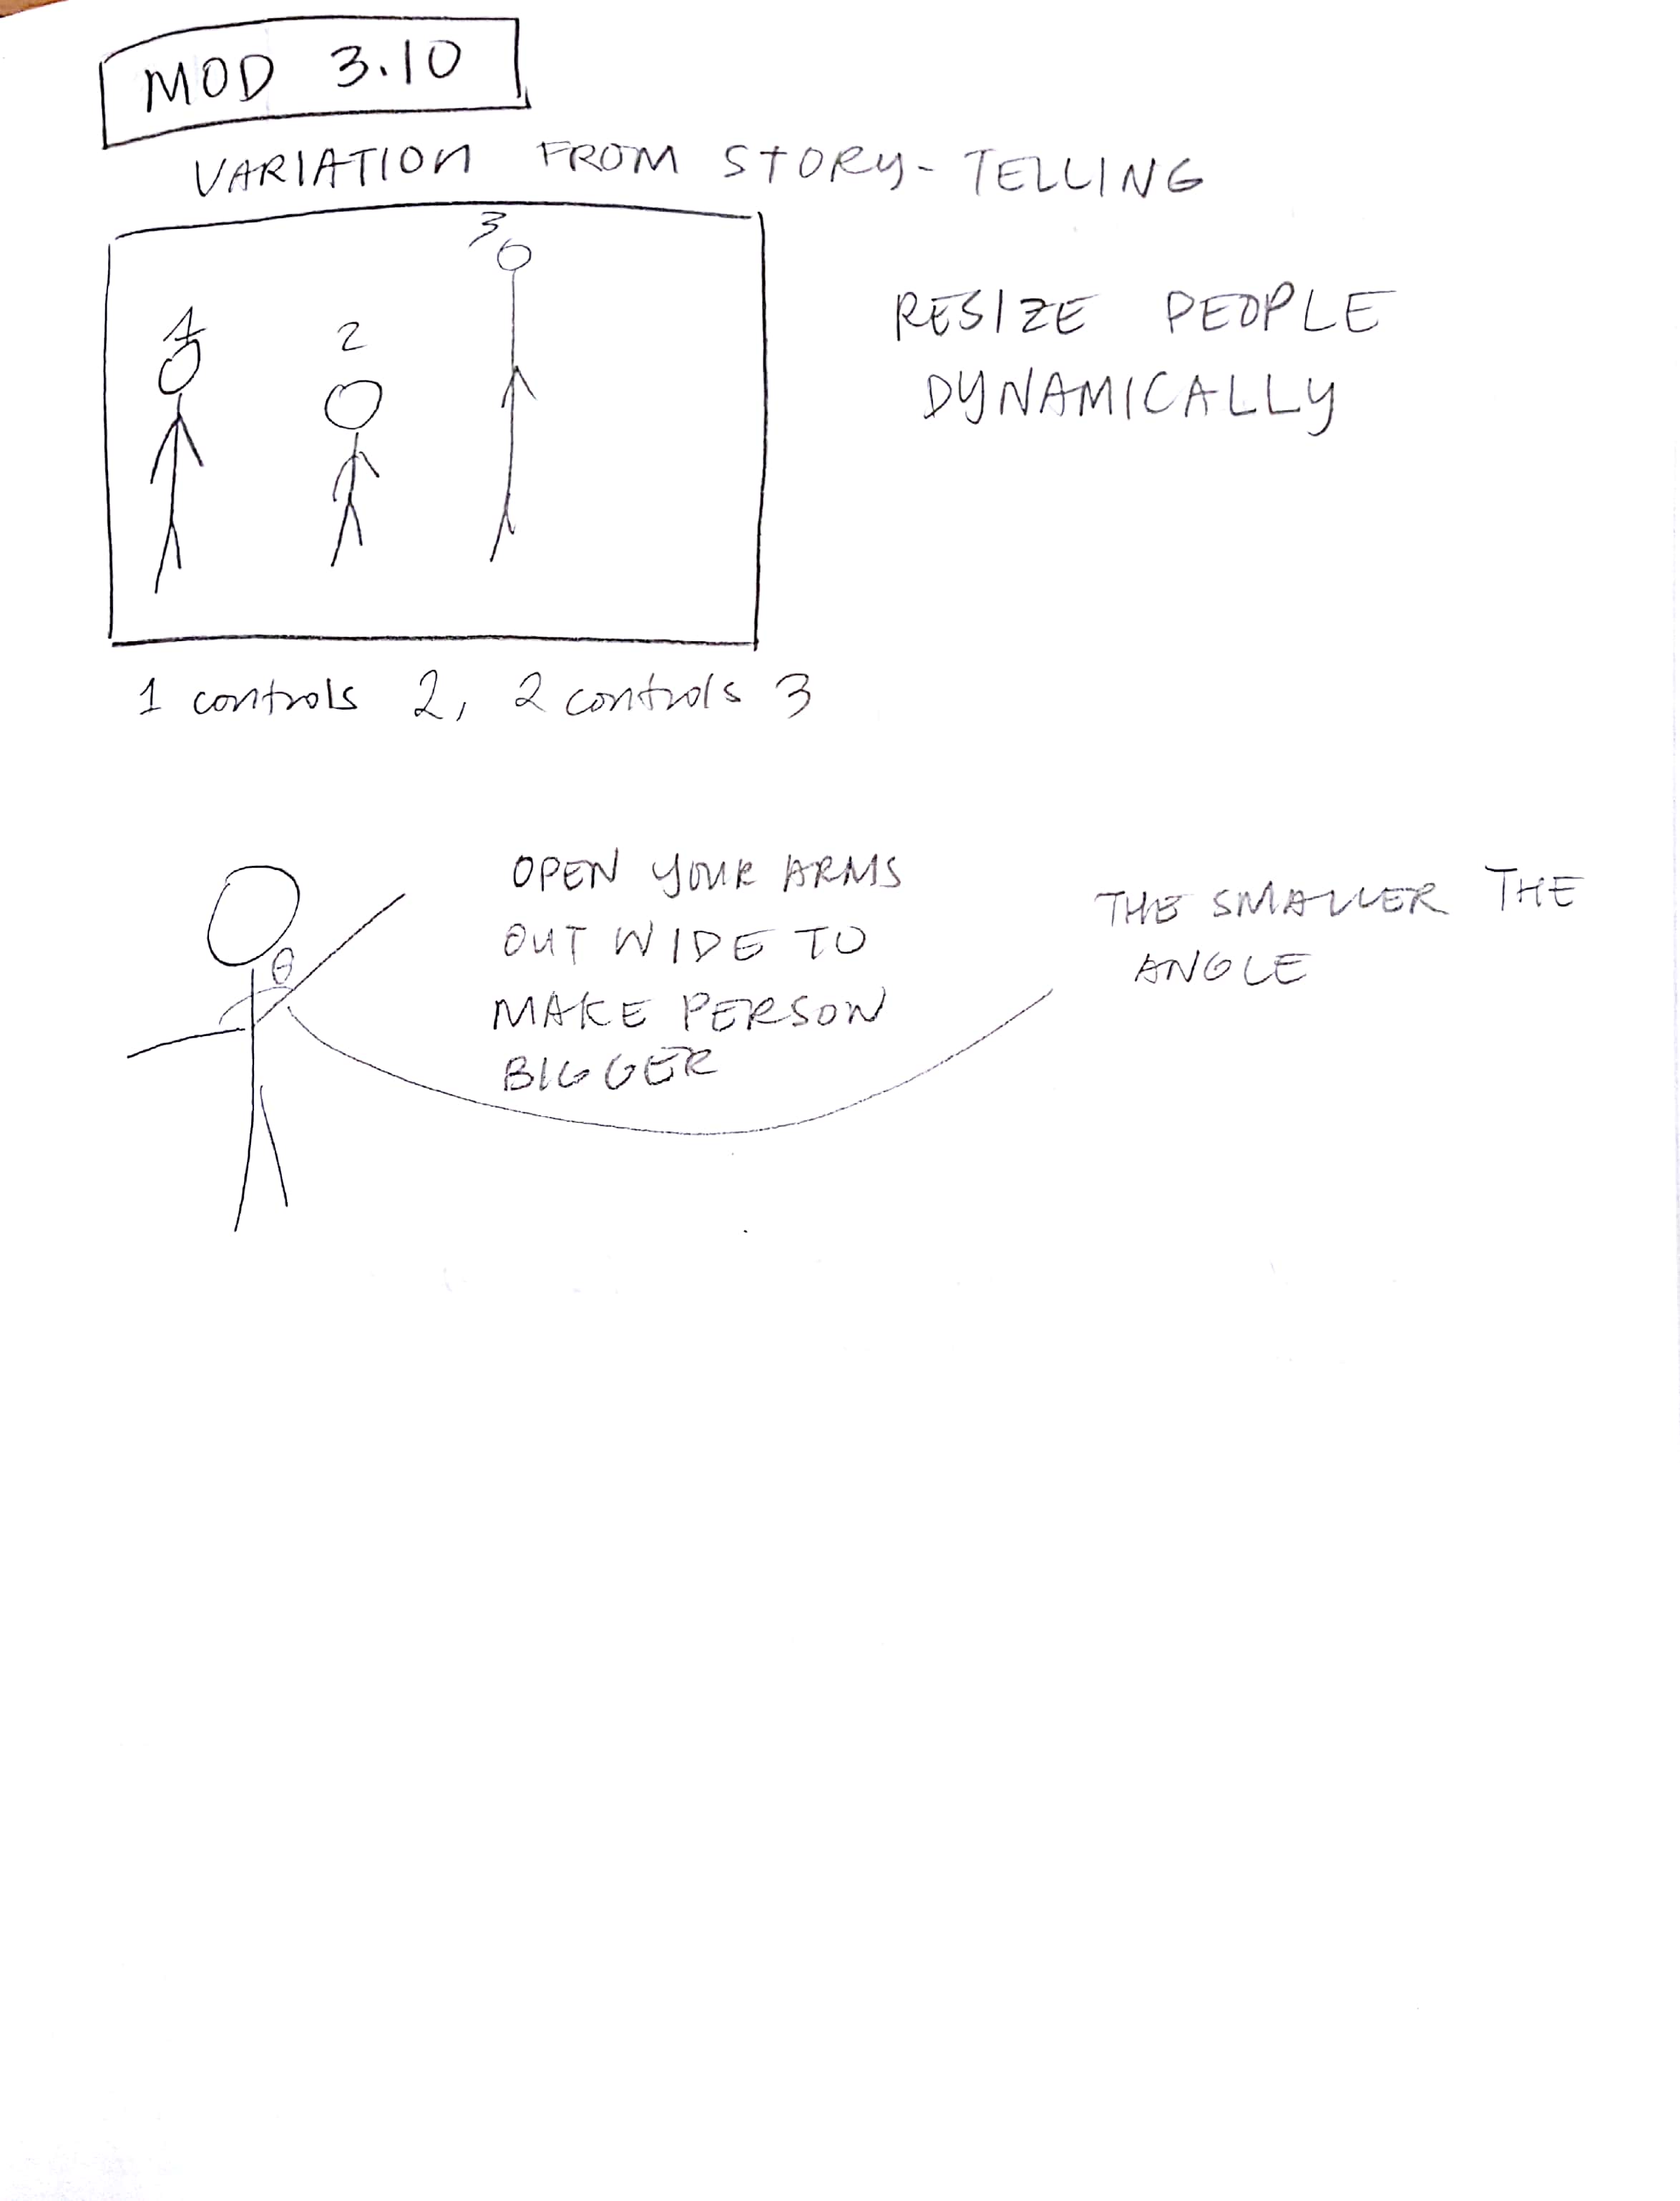 MOD 3.10
VARIATION FROM STORY-TELLING
3
1
2
RESIZE PEOPLE
DYNAMICALLY
1 controls 2, 2 controls 3
OPEN YOUR ARMS
OUT WIDE TO
MAKE PERSON
BIGGER
THE SMALLER THE
ANGLE
θ